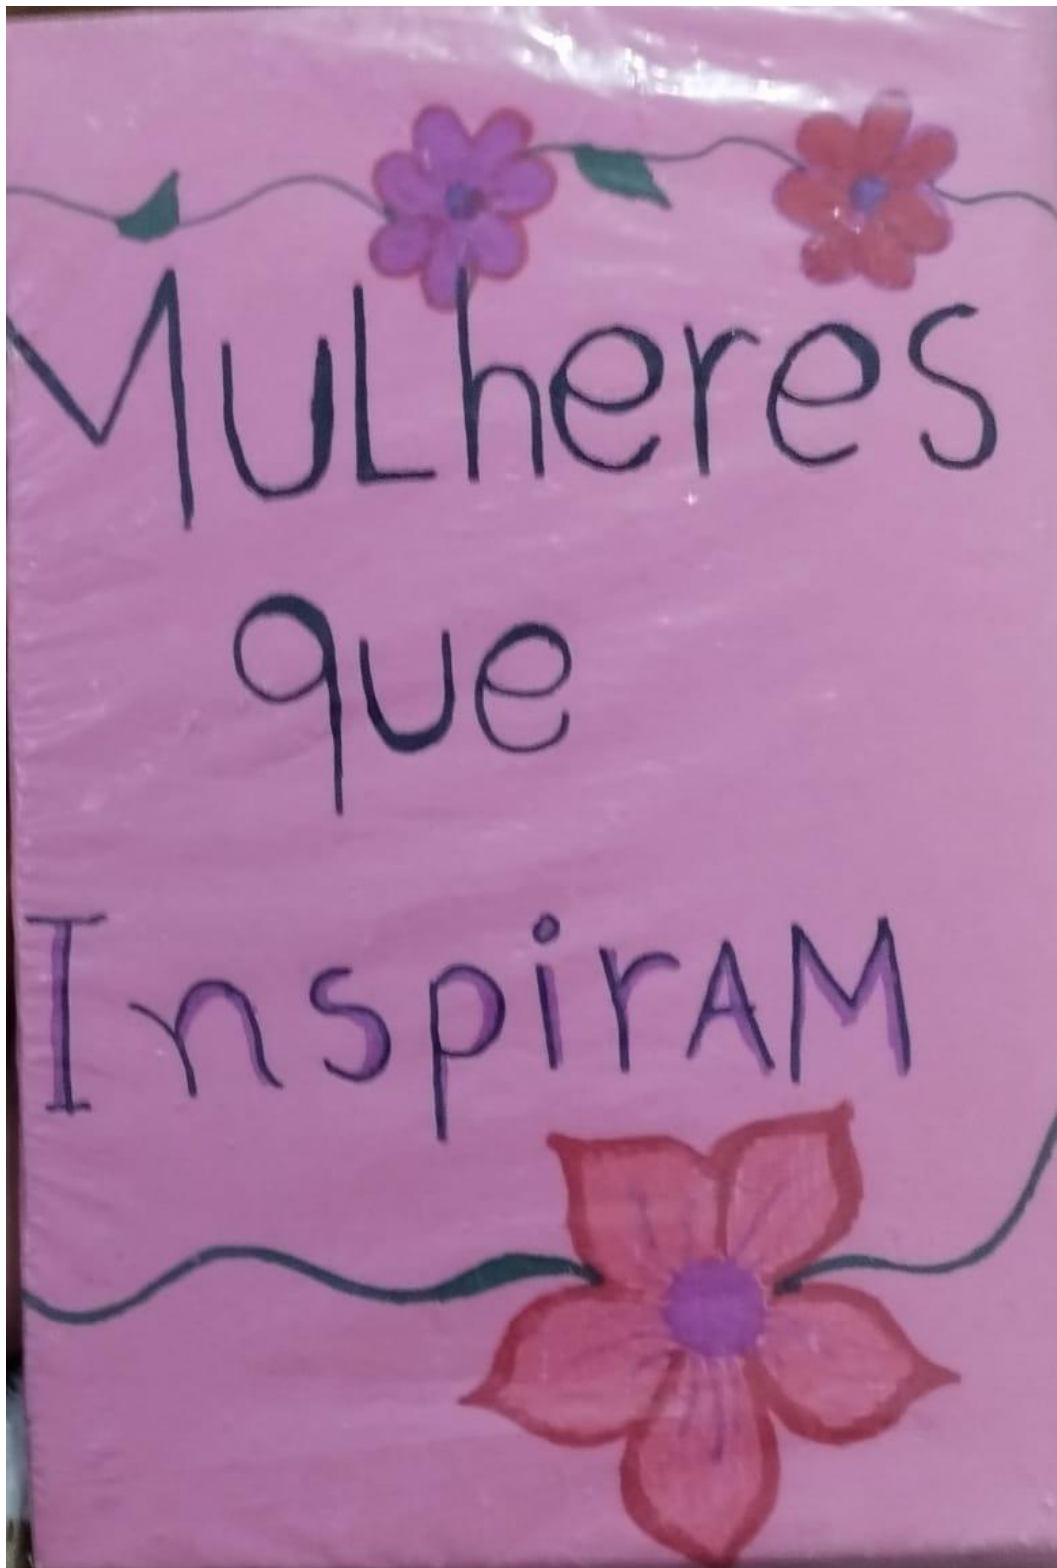 MuLheres
que
InspirAM